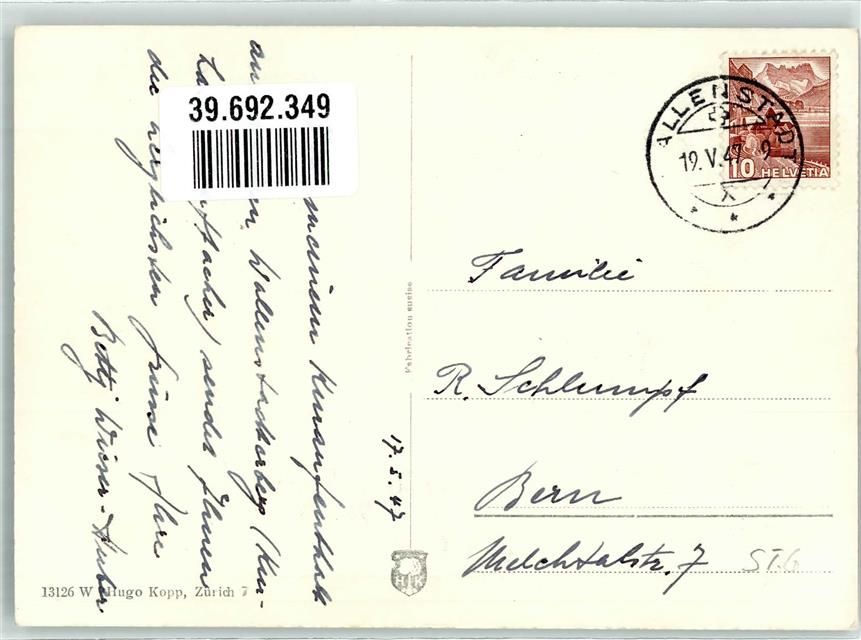 39.692.349
17.5.47
meinem Kuraufenthalt
Wallenstadtberg (Kur-
sendet Ihnen
die herzlichsten Grüsse Ihre
Betty Wieser-Huber
Fabrication suisse
ALLENSTADT
19.V.47
10
HELVETIA
Familie
R. Schlumpf
Bern
Melchtalstr. 7
St.G
HK
13126 W Hugo Kopp, Zürich 7